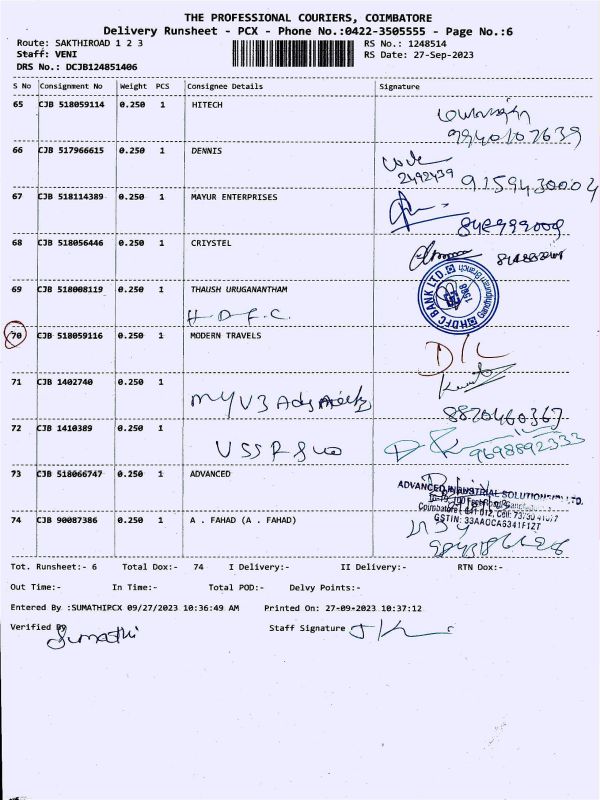 THE PROFESSIONAL COURIERS, COIMBATORE
Delivery Runsheet - PCX - Phone No.:0422-3505555 - Page No.:6
Route: SAKTHIROAD 1 2 3 RS No.: 1248514
Staff: VENI RS Date: 27-Sep-2023
DRS No.: DCJB124851406
S No Consignment No Weight PCS Consignee Details Signature
65 CJB 518059114 0.250 1 HITECH
9940107639
66 CJB 517966615 0.250 1 DENNIS
code
2492439 9159430004
67 CJB 518114389 0.250 1 MAYUR ENTERPRISES
68 CJB 518056446 0.250 1 CRIYSTEL
HDFC BANK LTD.
69 CJB 518008119 0.250 1 THAUSH URUGANANTHAM
H.D.F.C.
70 CJB 518059116 0.250 1 MODERN TRAVELS
D/L
71 CJB 1402740 0.250 1
MYV3
8820460367
72 CJB 1410389 0.250 1
9698892333
73 CJB 518066747 0.250 1 ADVANCED
ADVANCED INDUSTRIAL SOLUTIONS LTD.
GSTIN: 33AAOCA6341F1ZT
74 CJB 90087386 0.250 1 A . FAHAD (A . FAHAD)
Tot. Runsheet:- 6 Total Dox:- 74 I Delivery:- II Delivery:- RTN Dox:-
Out Time:- In Time:- Total POD:- Delvy Points:-
Entered By :SUMATHIPCX 09/27/2023 10:36:49 AM Printed On: 27-09-2023 10:37:12
Verified By Sumathi Staff Signature